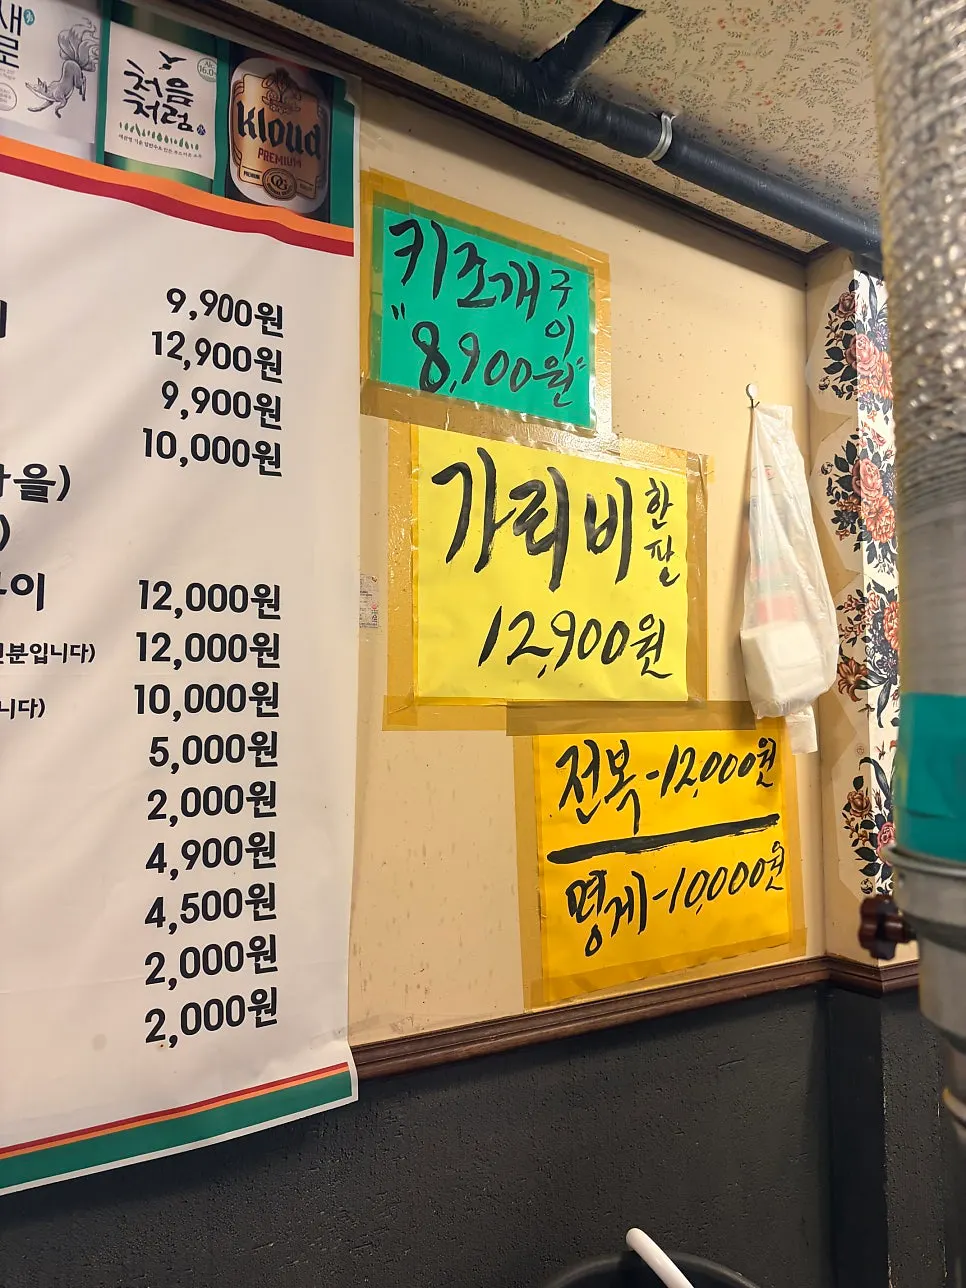 새로
처음처럼
Kloud
PREMIUM
9,900원
12,900원
9,900원
10,000원
을)
)
이
12,000원
분입니다) 12,000원
니다) 10,000원
5,000원
2,000원
4,900원
4,500원
2,000원
2,000원
키조개구이
"8,900원"
가리비 한판
12,900원
전복-12,000원
멍게-10,000원